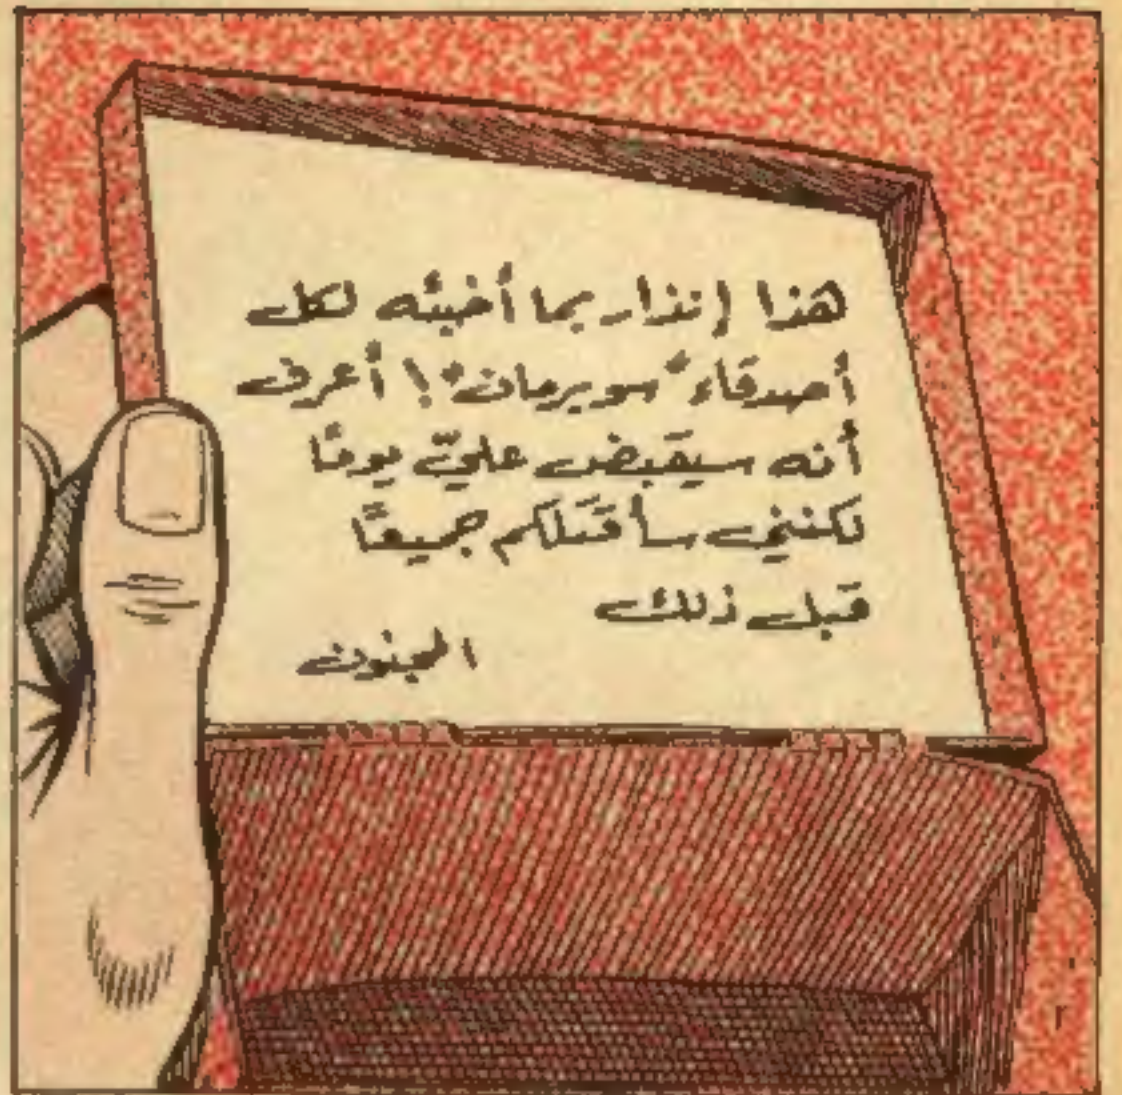 هذا إنذار بما أخبئه لكل
أصدقاء "سوبرمان"! أعرف
أنه سيقبض عليّ يومًا
لكنني سأقتلكم جميعًا
قبل ذلك
المجنون